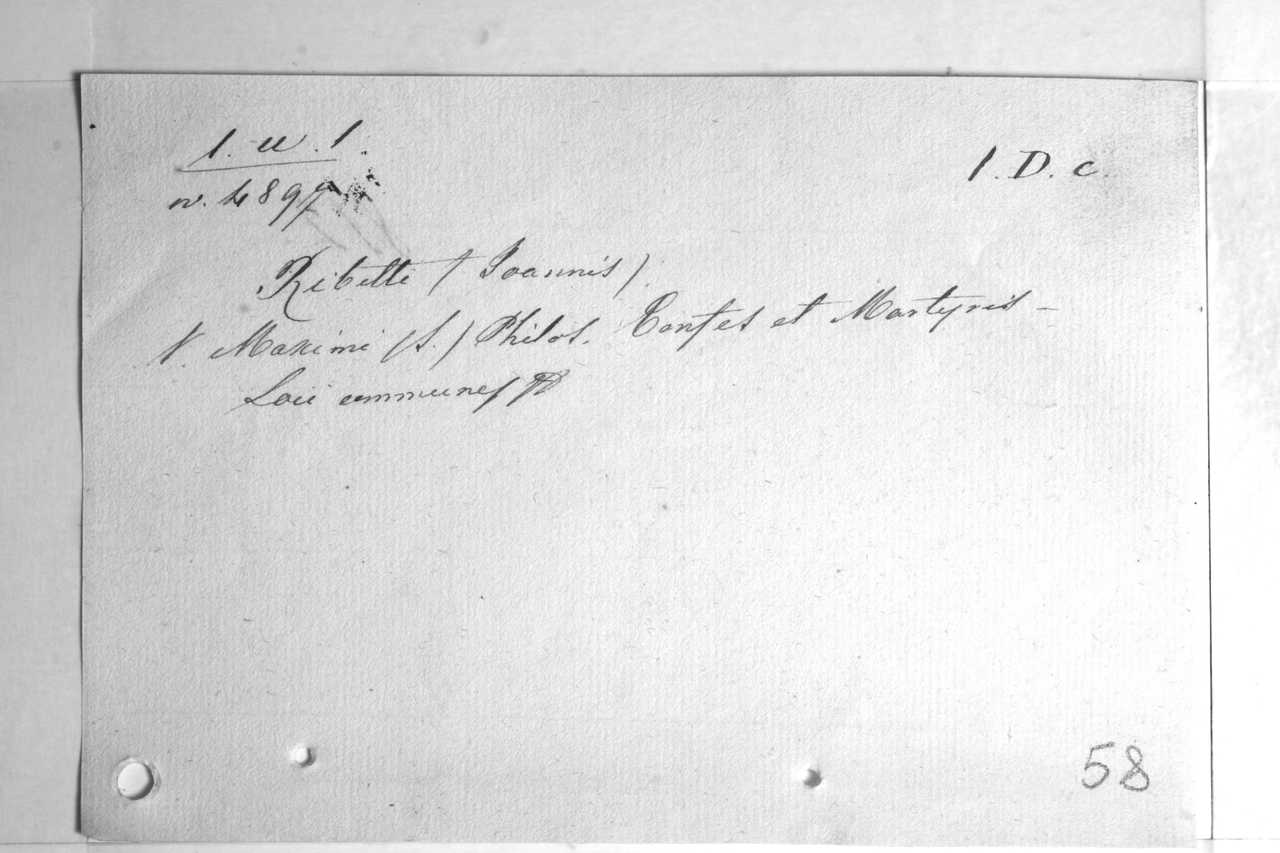 1. u. 1.
1. D. c.
n. 4897
Ribitti (Joannis).
V. Maximi (S.) Philos. Confes et Martyris -
Loci communes
58